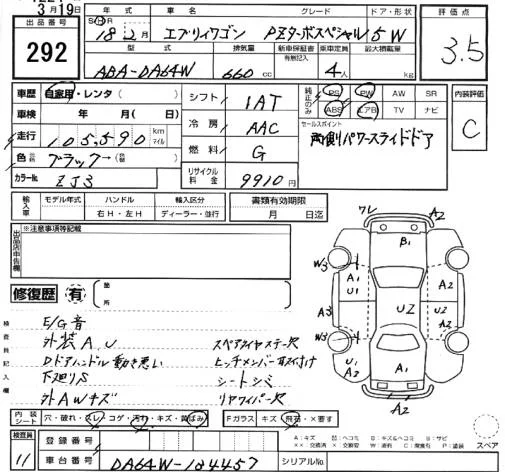 3月19日
出品番号
292
年式 車名 グレード ドア・形状
S H 18 2月 エブリィワゴン PZターボスペシャル 5W
型式 排気量 新車保証書 有無記入 乗車定員 最大積載量
ABA-DA64W 660cc 4人 kg
評価点
3.5
車歴 自家用・レンタ( )
車検 年 月( )
走行 105,590 km マイル
色 ブラック→( )
カラーNo. ZJ3
シフト IAT
冷房 AAC
燃料 G
リサイクル料金 9910円
純正のみ PS PW AW SR
ABS エアB TV ナビ
セールスポイント
両側パワースライドドア
内装評価
C
輸入車 モデル年式 ハンドル 輸入区分
右H・左H ディーラー・並行
書類有効期限
月 日迄
出品店申告欄
※注意事項等記載
修復歴 有 箇所
検査員記入欄
E/G音
外装A、U
Dドアハンドル動き悪い
下廻りS
外AWキズ
スペアタイヤステー欠
ヒッチメンバー取付け
シートシミ
リヤワイパー欠
ワレ A2
B1
W3 A2 U1 A2
A3 UZ U2
W3 A2 U1 A1 A2
A2
内装シート 穴・破れ・スレ・コゲ・汚れ・キズ・黄ばみ
Fガラス キズ・飛石・×要す
A:キズ 凹:ヘコミ B:キズ&ヘコミ S:サビ
××:交換済 ×:交換要 W:波有 C:腐食有 P:塗装
スペア
検査員 11
登録番号
車台番号 DA64W-184457
シリアルNo.